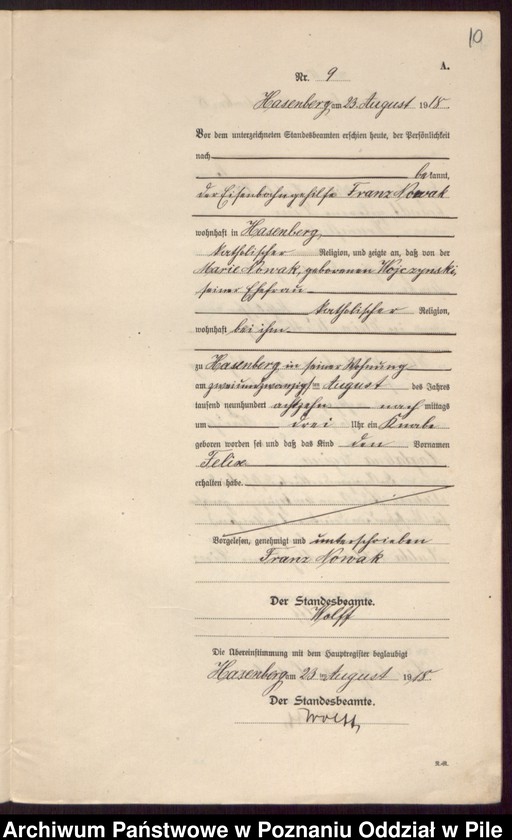 10
A.
Nr. 9
Hasenberg, am 23. August 1918.
Vor dem unterzeichneten Standesbeamten erschien heute, der Persönlichkeit
nach
bekannt,
der Eisenbahngehilfe Franz Nowak
wohnhaft in Hasenberg,
katholischer Religion, und zeigte an, daß von der
Marie Nowak, geborenen Wojczynski,
seiner Ehefrau
katholischer Religion,
wohnhaft bei ihm.
zu Hasenberg in seiner Wohnung
am zweiundzwanzigsten August des Jahres
tausend neunhundert achtzehn nach mittags
um drei Uhr ein Knabe
geboren worden sei und daß das Kind den Vornamen
Felix
erhalten habe.
Vorgelesen, genehmigt und unterschrieben
Franz Nowak
Der Standesbeamte.
Wolff
Die Übereinstimmung mit dem Hauptregister beglaubigt
Hasenberg am 23. August 1918.
Der Standesbeamte.
Wolff
Archiwum Państwowe w Poznaniu Oddział w Pile